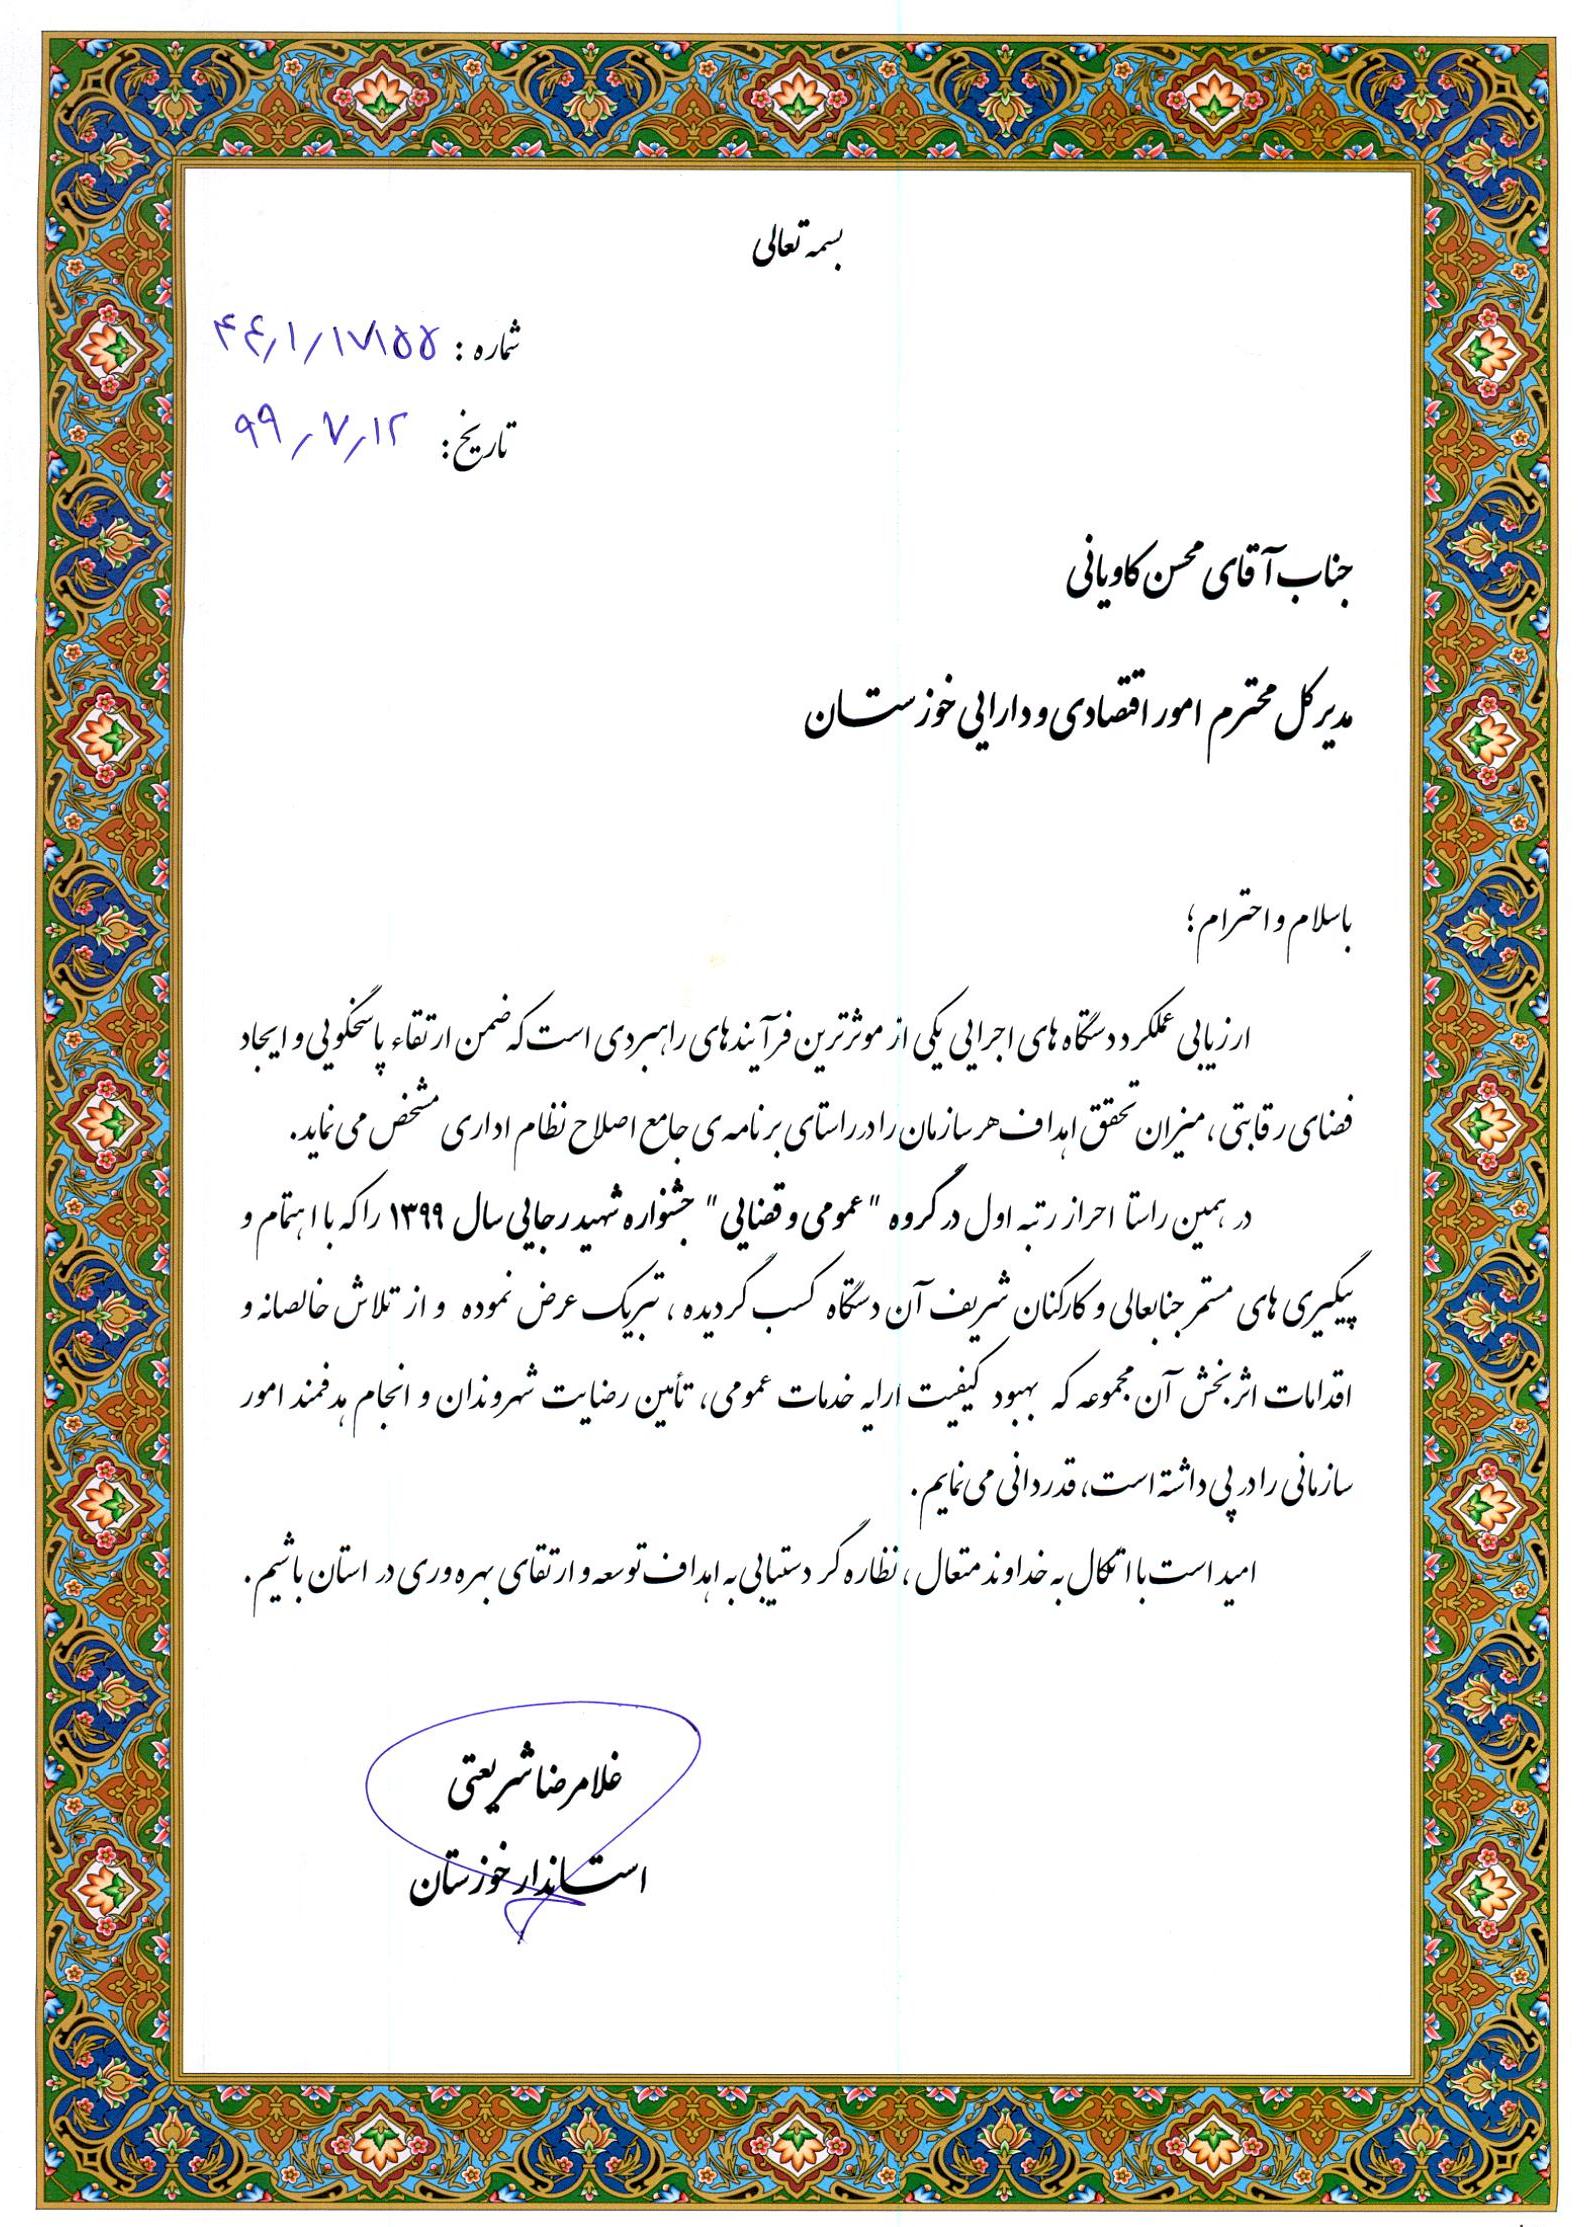 بسمه تعالی
شماره : ۴۴/۱/۱۷۱۵۵
تاریخ: ۹۹/۷/۱۲
جناب آقای محسن کاویانی
مدیرکل محترم امور اقتصادی و دارایی خوزستان
باسلام و احترام؛
ارزیابی عملکرد دستگاه های اجرایی یکی از موثرترین فرآیندهای راهبردی است که ضمن ارتقاء پاسخگویی و ایجاد
فضای رقابتی، میزان تحقق اهداف هر سازمان را در راستای برنامه ی جامع اصلاح نظام اداری مشخص می نماید.
در همین راستا احراز رتبه اول در گروه "عمومی و قضایی" جشنواره شهید رجایی سال ۱۳۹۹ را که با اهتمام و
پیگیری های مستمر جنابعالی و کارکنان شریف آن دستگاه کسب گردیده ، تبریک عرض نموده و از تلاش خالصانه و
اقدامات اثربخش آن مجموعه که بهبود کیفیت ارایه خدمات عمومی، تأمین رضایت شهروندان و انجام هدفمند امور
سازمانی را در پی داشته است، قدردانی می نمایم.
امید است با اتکال به خداوند متعال ، نظاره گر دستیابی به اهداف توسعه و ارتقای بهره وری در استان باشیم.
غلامرضا شریعتی
استاندار خوزستان